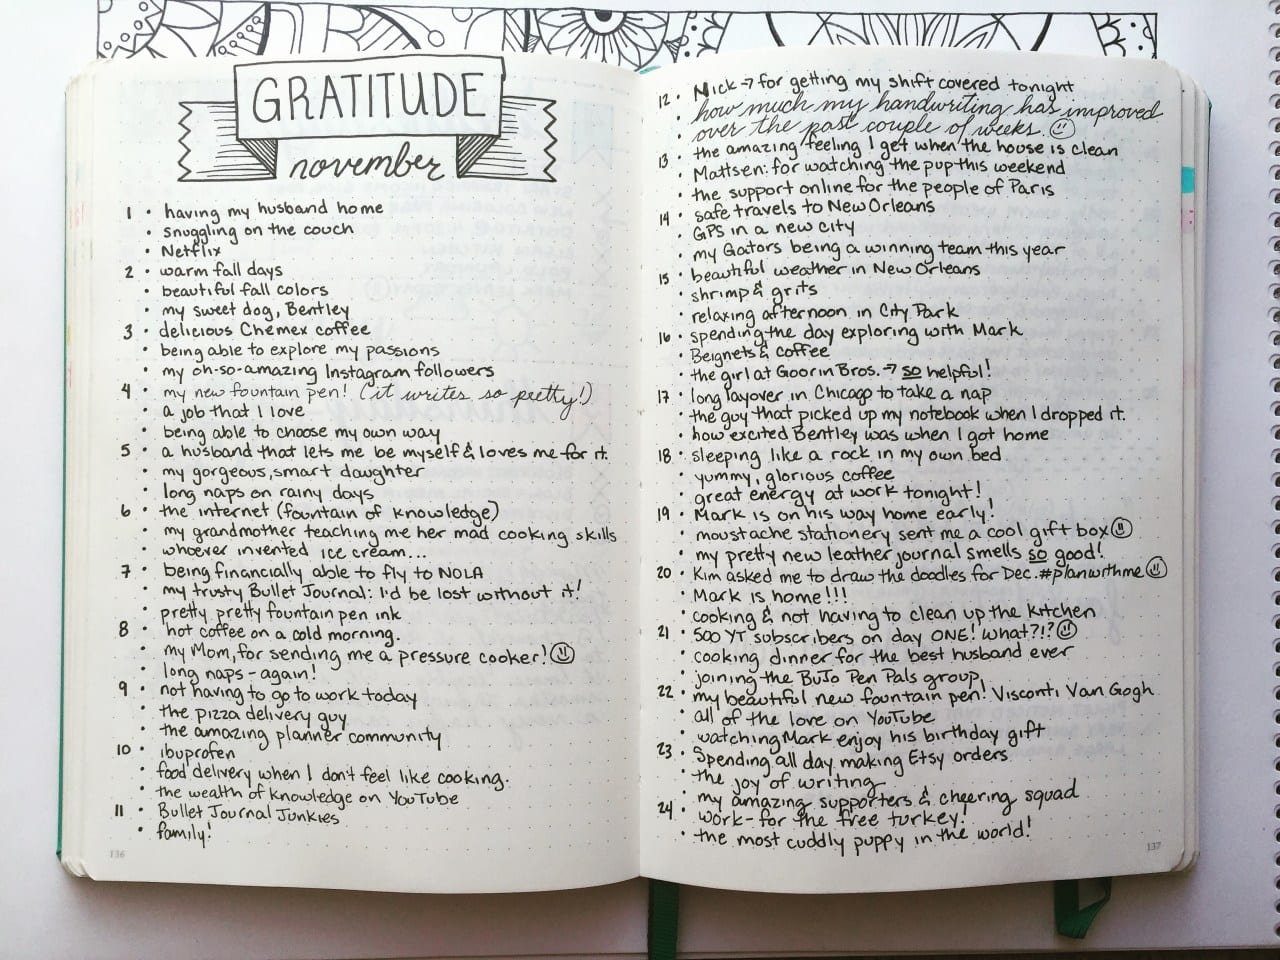 GRATITUDE
november
1 • having my husband home
• snuggling on the couch
• Netflix
2 • warm fall days
• beautiful fall colors
• my sweet dog, Bentley
3 • delicious Chemex coffee
• being able to explore my passions
• my oh-so-amazing Instagram followers
4 • my new fountain pen! (it writes so pretty!)
• a job that I love
• being able to choose my own way
5 • a husband that lets me be myself & loves me for it.
• my gorgeous, smart daughter
• long naps on rainy days
6 • the internet (fountain of knowledge)
• my grandmother teaching me her mad cooking skills
• whoever invented ice cream...
7 • being financially able to fly to NOLA
• my trusty Bullet Journal: I'd be lost without it!
• pretty pretty fountain pen ink
8 • hot coffee on a cold morning.
• my Mom, for sending me a pressure cooker! ☺
• long naps - again!
9 • not having to go to work today
• the pizza delivery guy
• the amazing planner community
10 • ibuprofen
• food delivery when I don't feel like cooking.
• the wealth of knowledge on YouTube
11 • Bullet Journal Junkies
• family!
136
12 • Nick → for getting my shift covered tonight
• how much my handwriting has improved
over the past couple of weeks. ☺
13 • the amazing feeling I get when the house is clean
• Mattsen: for watching the pup this weekend
• the support online for the people of Paris
14 • safe travels to New Orleans
• GPS in a new city
• my Gators being a winning team this year
15 • beautiful weather in New Orleans
• shrimp & grits
• relaxing afternoon in City Park
16 • spending the day exploring with Mark
• Beignets & coffee
• the girl at Goorin Bros. → so helpful!
17 • long layover in Chicago to take a nap
• the guy that picked up my notebook when I dropped it.
• how excited Bentley was when I got home
18 • sleeping like a rock in my own bed
• yummy, glorious coffee
• great energy at work tonight!
19 • Mark is on his way home early!
• moustache stationery sent me a cool gift box ☺
• my pretty new leather journal smells so good!
20 • Kim asked me to draw the doodles for Dec. #planwithme ☺
• Mark is home!!!
• cooking & not having to clean up the kitchen
21 • 500 YT subscribers on day ONE! what?!? ☺
• cooking dinner for the best husband ever
• joining the BuJo Pen Pals group
22 • my beautiful new fountain pen! Visconti Van Gogh
• all of the love on YouTube
• watching Mark enjoy his birthday gift
23 • Spending all day making Etsy orders
• the joy of writing
• my amazing supporters & cheering squad
24 • work - for the free turkey!
• the most cuddly puppy in the world!
137